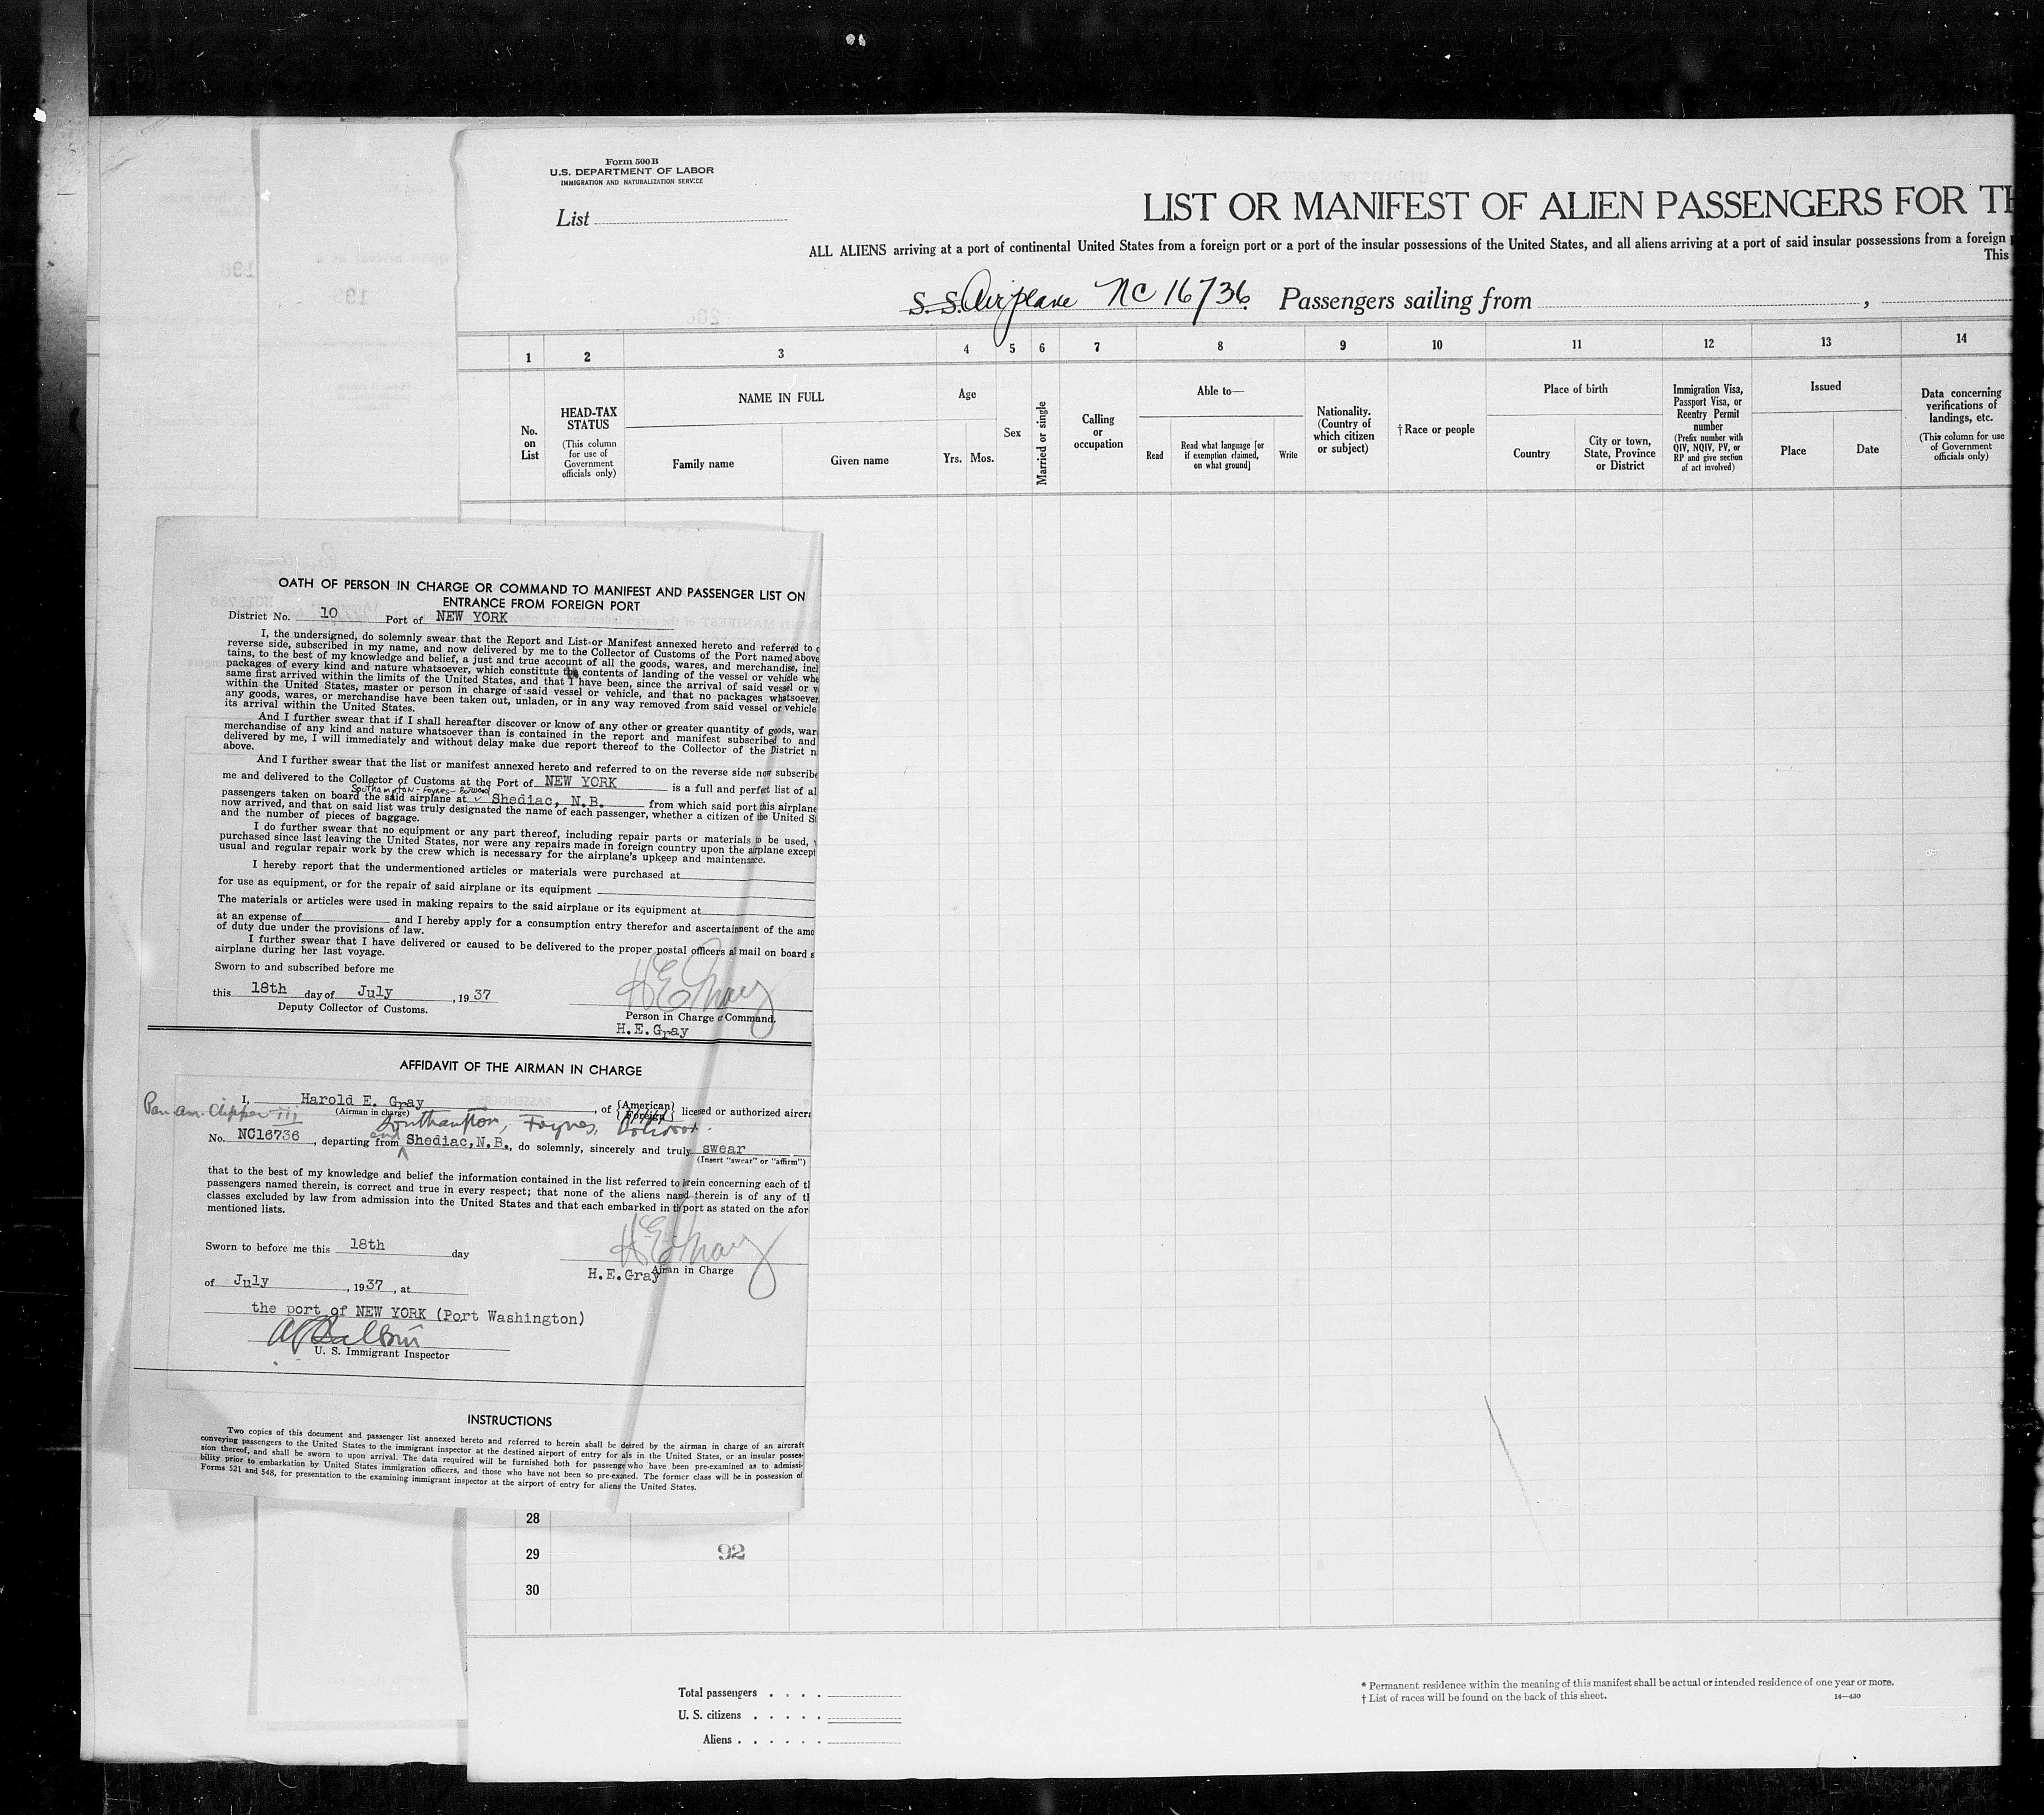 Form 500B
U.S. DEPARTMENT OF LABOR
IMMIGRATION AND NATURALIZATION SERVICE
List
LIST OR MANIFEST OF ALIEN PASSENGERS FOR TH
ALL ALIENS arriving at a port of continental United States from a foreign port or a port of the insular possessions of the United States, and all aliens arriving at a port of said insular possessions from a foreign
This
S. S. Airplane NC 16736 Passengers sailing from ,
1 2 3 4 5 6 7 8 9 10 11 12 13 14
No. on List
HEAD-TAX STATUS
(This column for use of Government officials only)
NAME IN FULL
Family name
Given name
Age
Yrs. Mos.
Sex
Married or single
Calling or occupation
Able to—
Read
Read what language [or if exemption claimed, on what ground]
Write
Nationality. (Country of which citizen or subject)
†Race or people
Place of birth
Country
City or town, State, Province or District
Immigration Visa, Passport Visa, or Reentry Permit number
(Prefix number with QIV, NQIV, PV, or RP and give section of act involved)
Issued
Place
Date
Data concerning verifications of landings, etc.
(This column for use of Government officials only)
OATH OF PERSON IN CHARGE OR COMMAND TO MANIFEST AND PASSENGER LIST ON
ENTRANCE FROM FOREIGN PORT
District No. 10 Port of NEW YORK
I, the undersigned, do solemnly swear that the Report and List or Manifest annexed hereto and referred to o
reverse side, subscribed in my name, and now delivered by me to the Collector of Customs of the Port named above
tains, to the best of my knowledge and belief, a just and true account of all the goods, wares, and merchandise, incl
packages of every kind and nature whatsoever, which constitute the contents of landing of the vessel or vehicle whe
same first arrived within the limits of the United States, and that I have been, since the arrival of said vessel or v
within the United States, master or person in charge of said vessel or vehicle, and that no packages whatsoever
any goods, wares, or merchandise have been taken out, unladen, or in any way removed from said vessel or vehicle
its arrival within the United States.
And I further swear that if I shall hereafter discover or know of any other or greater quantity of goods, war
merchandise of any kind and nature whatsoever than is contained in the report and manifest subscribed to and
delivered by me, I will immediately and without delay make due report thereof to the Collector of the District n
above.
And I further swear that the list or manifest annexed hereto and referred to on the reverse side now subscribe
me and delivered to the Collector of Customs at the Port of NEW YORK is a full and perfect list of al
Southampton - Foynes - Botwood
passengers taken on board the said airplane at Shediac, N.B. from which said port this airplane
now arrived, and that on said list was truly designated the name of each passenger, whether a citizen of the United S
and the number of pieces of baggage.
I do further swear that no equipment or any part thereof, including repair parts or materials to be used,
purchased since last leaving the United States, nor were any repairs made in foreign country upon the airplane except
usual and regular repair work by the crew which is necessary for the airplane's upkeep and maintenance.
I hereby report that the undermentioned articles or materials were purchased at
for use as equipment, or for the repair of said airplane or its equipment
The materials or articles were used in making repairs to the said airplane or its equipment at
at an expense of and I hereby apply for a consumption entry therefor and ascertainment of the amo
of duty due under the provisions of law.
I further swear that I have delivered or caused to be delivered to the proper postal officers al mail on board s
airplane during her last voyage.
Sworn to and subscribed before me
this 18th day of July , 19 37
Deputy Collector of Customs.
H E Gray
Person in Charge or Command.
H.E.Gray
AFFIDAVIT OF THE AIRMAN IN CHARGE
I, Harold E. Gray , of {American} {Foreign} licensed or authorized aircra
(Airman in charge)
Pan. Am. Clipper III
Southampton, Foynes, Botwood.
and
No. NC16736 , departing from Shediac, N.B., do solemnly, sincerely and truly swear
(Insert "swear" or "affirm")
that to the best of my knowledge and belief the information contained in the list referred to herein concerning each of th
passengers named therein, is correct and true in every respect; that none of the aliens named therein is of any of th
classes excluded by law from admission into the United States and that each embarked in the port as stated on the afor
mentioned lists.
Sworn to before me this 18th day
H E Gray
H.E.Gray Airman in Charge
of July , 1937 , at
the port of NEW YORK (Port Washington)
U. S. Immigrant Inspector
INSTRUCTIONS
Two copies of this document and passenger list annexed hereto and referred to herein shall be delivered by the airman in charge of an aircraft
conveying passengers to the United States to the immigrant inspector at the destined airport of entry for aliens in the United States, or an insular posses-
sion thereof, and shall be sworn to upon arrival. The data required will be furnished both for passengers who have been pre-examined as to admissi-
bility prior to embarkation by United States immigration officers, and those who have not been so pre-examined. The former class will be in possession of
Forms 521 and 548, for presentation to the examining immigrant inspector at the airport of entry for aliens the United States.
28
29 92
30
Total passengers . . . .
U. S. citizens . . . . .
Aliens . . . . . .
* Permanent residence within the meaning of this manifest shall be actual or intended residence of one year or more.
† List of races will be found on the back of this sheet.
14—430